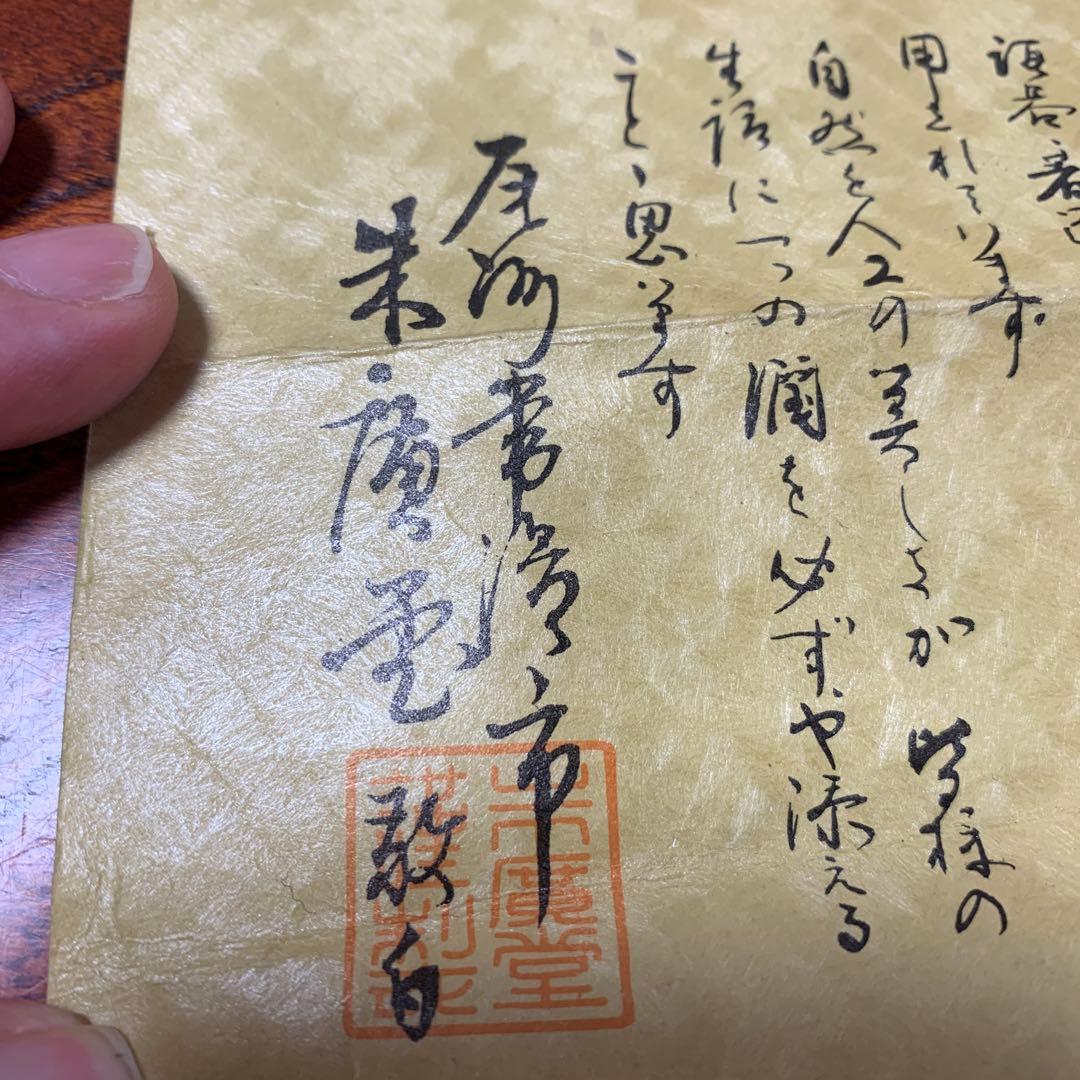 用されています
自然と人工の美しさが皆様の
生活に一つの潤を必ずや添える
ことゝ思います
尾州常滑市
朱廣堂 敬白
朱廣堂
謹製